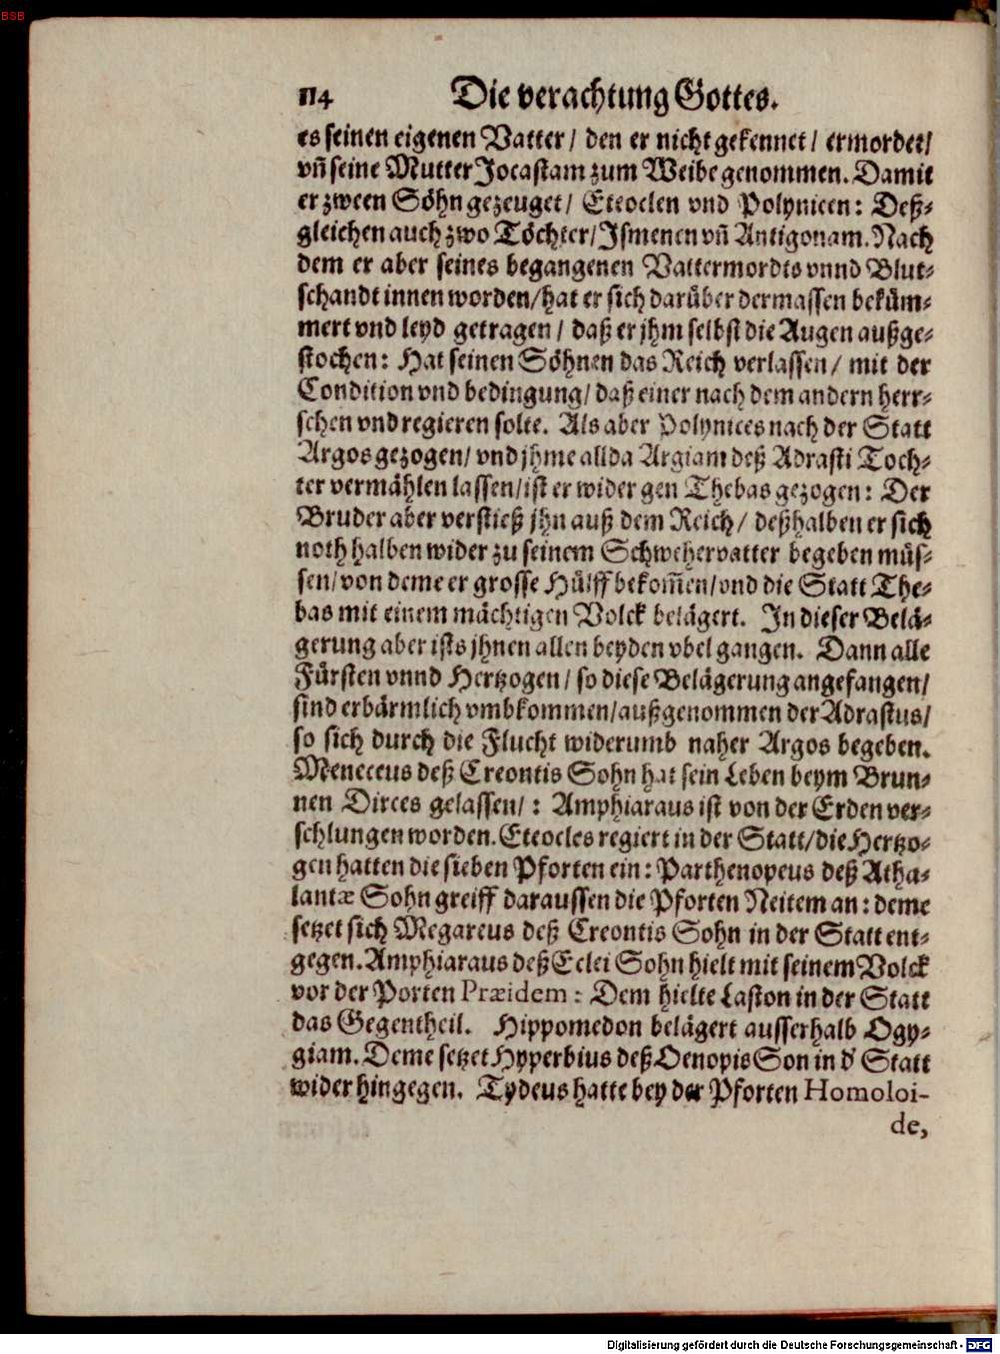 BSB
114 Die verachtung Gottes.
es seinen eigenen Vatter / den er nicht gekennet / ermordet/
vñ seine Mutter Jocastam zum Weibe genommen. Damit
er zween Söhn gezeuget / Eteoclen vnd Polynicen: Deß-
gleichen auch zwo Töchter/ Ismenen vñ Antigonam. Nach
dem er aber seines begangenen Vattermordts vnnd Blut-
schandt innen worden/ hat er sich darüber dermassen beküm-
mert vnd leyd getragen / daß er jhm selbst die Augen außge-
stochen: Hat seinen Söhnen das Reich verlassen / mit der
Condition vnd bedingung/ daß einer nach dem andern herr-
schen vnd regieren solte. Als aber Polynices nach der Statt
Argos gezogen/ vnd jhme allda Argiam deß Adrasti Toch-
ter vermählen lassen/ ist er wider gen Thebas gezogen: Der
Bruder aber verstieß jhn auß dem Reich / deßhalben er sich
noth halben wider zu seinem Schwehervatter begeben müs-
sen/ von deme er grosse Hülff bekom̃en/ vnd die Statt The-
bas mit einem mächtigen Volck belägert. In dieser Belä-
gerung aber ists jhnen allen beyden vbel gangen. Dann alle
Fürsten vnnd Hertzogen / so diese Belägerung angefangen/
sind erbärmlich vmbkommen/ außgenommen der Adrastus/
so sich durch die Flucht widerumb naher Argos begeben.
Meneceus deß Creontis Sohn hat sein Leben beym Brun-
nen Dirces gelassen/ : Amphiaraus ist von der Erden ver-
schlungen worden. Eteocles regiert in der Statt/ die Hertzo-
gen hatten die sieben Pforten ein: Parthenopeus deß Atha-
lantæ Sohn greiff daraussen die Pforten Neitem an: deme
setzet sich Megareus deß Creontis Sohn in der Statt ent-
gegen. Amphiaraus deß Eclei Sohn hielt mit seinem Volck
vor der Porten Præidem : Dem hielte Laston in der Statt
das Gegentheil. Hippomedon belägert ausserhalb Ogy-
giam. Deme setzet Hyperbius deß Oenopis Son in d' Statt
wider hingegen. Tydeus hatte bey der Pforten Homoloi-
de,
Digitalisierung gefördert durch die Deutsche Forschungsgemeinschaft - DFG